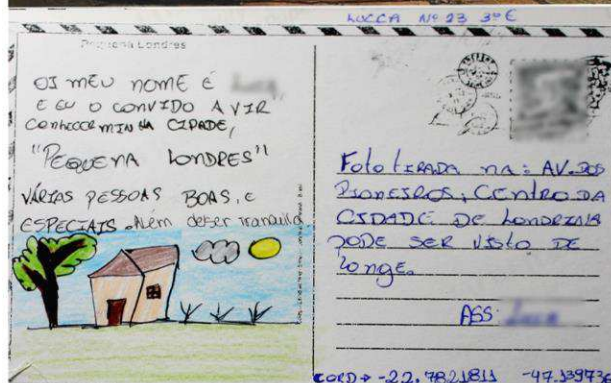 LUCCA Nº 23 3º E
Pequena Londres
OI MEU NOME É
E EU O CONVIDO A VIR
CONHECER MINHA CIDADE,
"PEQUENA LONDRES"!
VÁRIAS PESSOAS BOAS, E
ESPECIAIS. Além deser tranquila
Foto tirada na: AV. DOS
PIONEIROS, CENTRO DA
CIDADE DE LONDRINA
PODE SER VISTO DE
longe.
ASS:
CORD → -22.7821811 -47.139736